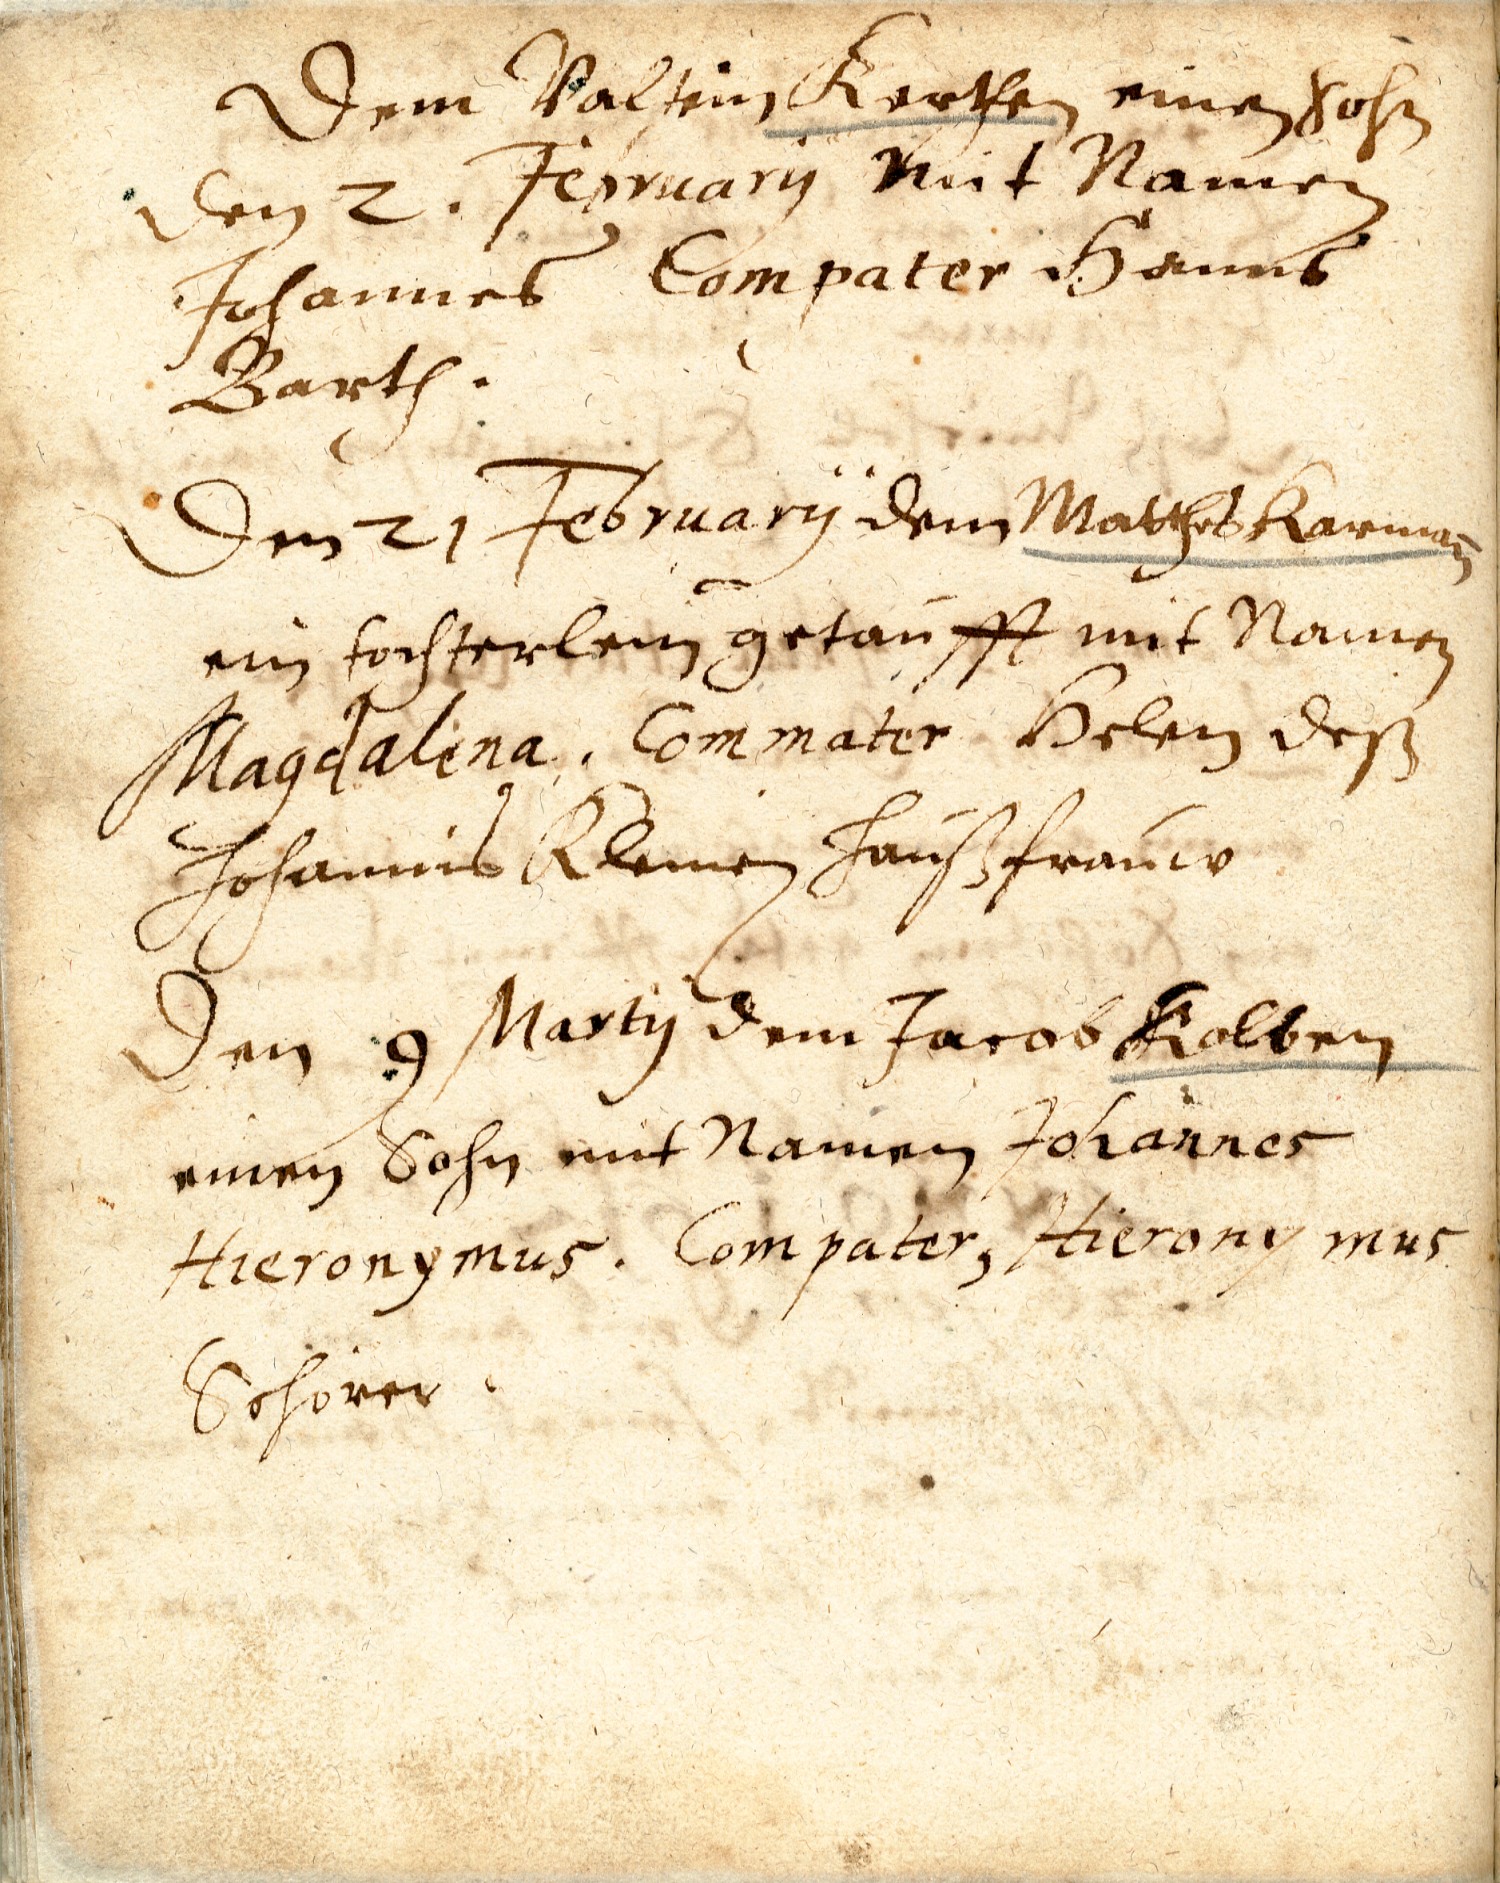 Dem Valtein Kerchen einen Sohn
den 2. February mit Namen
Johannes Compater Hanns
Barth.
Den 21 February dem Matthes Karman
ein tochterlein getaufft mit Namen
Magdalena. Commater Helen deß
Johannis Klemen haußfrauw
Den 9 Martij dem Jacob Kolben
einen Sohn mit Namen Johannes
Hieronymus. Compater, Hieronymus
Schörer.